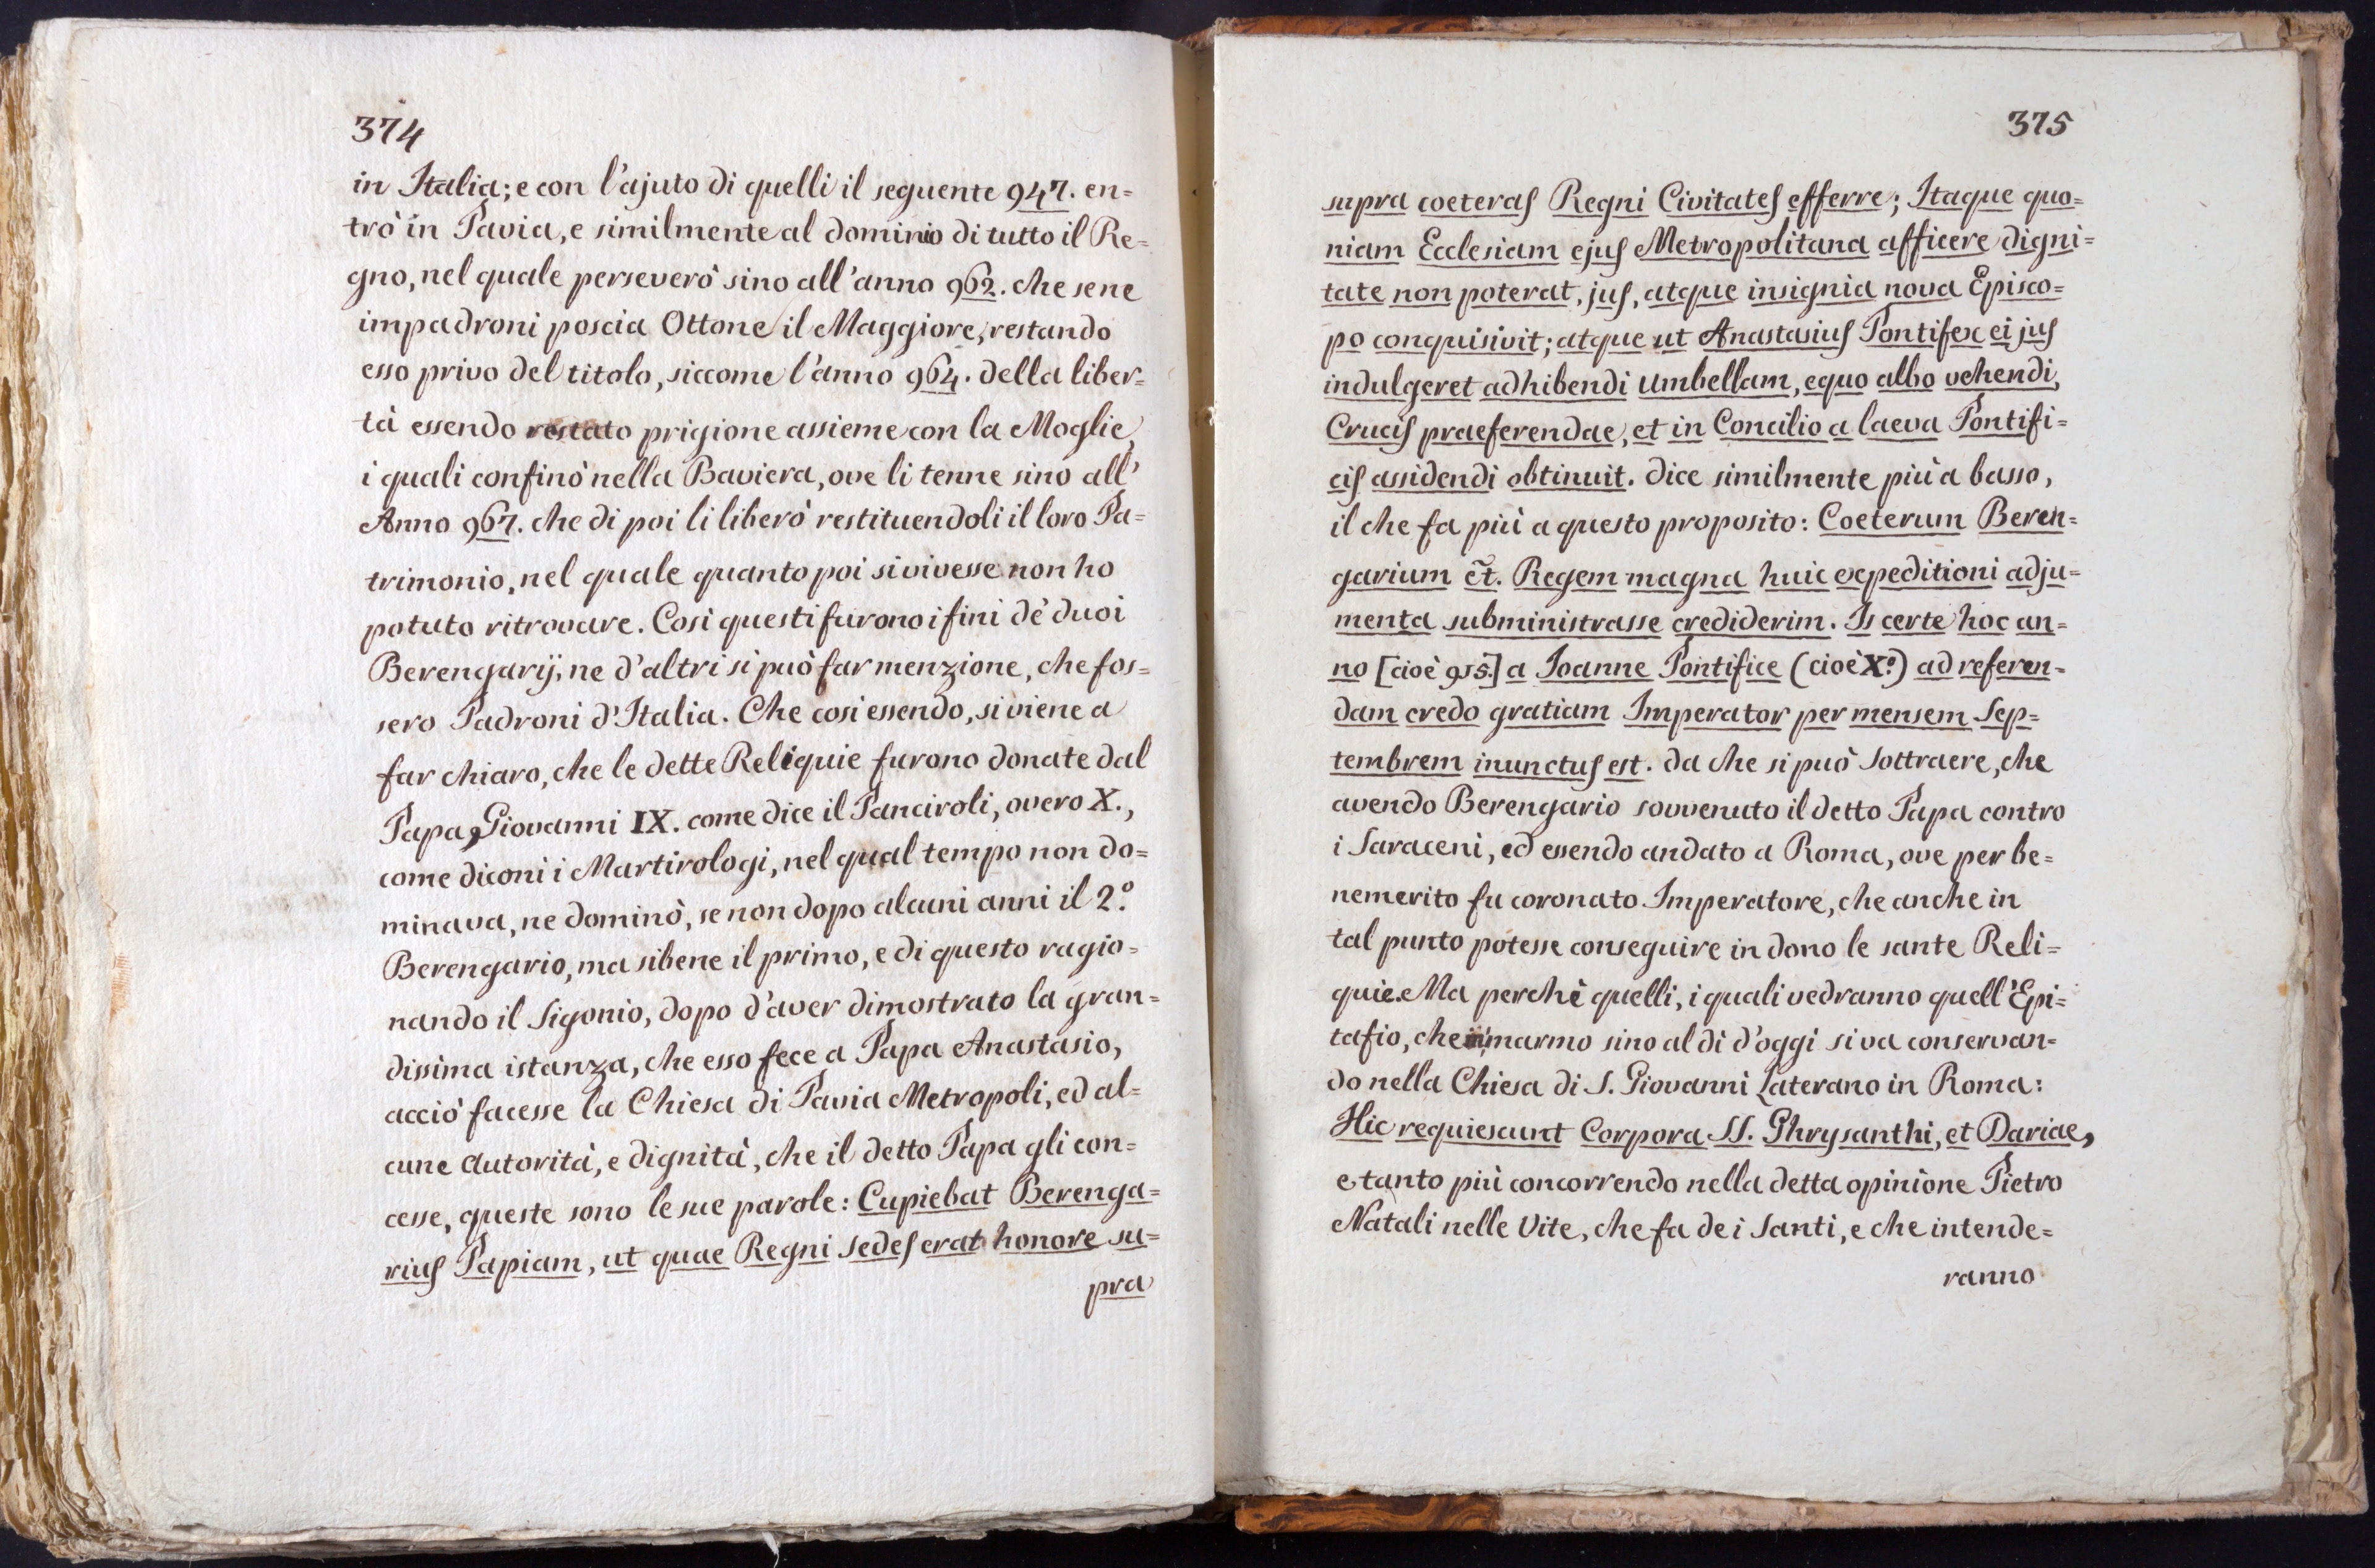 374
in Italia; e con l'ajuto di quelli il seguente 947. en=
trò in Pavia, e similmente al dominio di tutto il Re=
gno, nel quale perseverò sino all'anno 962. che se ne
impadroni poscia Ottone il Maggiore, restando
esso privo del titolo, siccome l'anno 964. della liber=
tà essendo restato prigione assieme con la Moglie,
i quali confinò nella Baviera, ove li tenne sino all'
Anno 967. che di poi li liberò restituendoli il loro Pa=
trimonio, nel quale quanto poi si vivesse non ho
potuto ritrovare. Così questi furono i fini de' duoi
Berengarij, ne d'altri si può far menzione, che fos=
sero Padroni d'Italia. Che così essendo, si viene a
far chiaro, che le dette Reliquie furono donate dal
Papa, Giovanni IX. come dice il Panciroli, overo X.,
come diconi i Martirologi, nel qual tempo non do=
minava, ne dominò, se non dopo alcuni anni il 2.º
Berengario, ma sibene il primo, e di questo ragio=
nando il Sigonio, dopo d'aver dimostrato la gran=
dissima istanza, che esso fece a Papa Anastasio,
acciò facesse la Chiesa di Pavia Metropoli, ed al=
cune autorità, e dignità, che il detto Papa gli con=
cesse, queste sono le sue parole: Cupiebat Berenga=
rius Papiam, ut quae Regni sedes erat honore su=
pra
375
supra coeteras Regni Civitates efferre; Itaque quo=
niam Ecclesiam ejus Metropolitana afficere digni=
tate non poterat, jus, atque insignia nova Episco=
po conquisivit; atque ut Anastasius Pontifex ei jus
indulgeret adhibendi umbellam, equo albo vehendi,
Crucis praeferendae, et in Concilio a laeva Pontifi=
cis assidendi obtinuit. dice similmente più a basso,
il che fa più a questo proposito: Coeterum Beren=
garium et̃. Regem magna huic expeditioni adju=
menta subministrasse crediderim. Is certe hoc an=
no [cioè 915.] a Joanne Pontifice (cioè X.º) ad referen=
dam credo gratiam Imperator per mensem Sep=
tembrem inunctus est. da che si può sottraere, che
avendo Berengario sovvenuto il detto Papa contro
i Saraceni, ed essendo andato a Roma, ove per be=
nemerito fu coronato Imperatore, che anche in
tal punto potesse conseguire in dono le sante Reli=
quie. Ma perchè quelli, i quali vedranno quell'Epi=
tafio, che in marmo sino al dì d'oggi si va conservan=
do nella Chiesa di S. Giovanni Laterano in Roma:
Hic requiescunt Corpora SS. Chrysanthi, et Dariae,
e tanto più concorrendo nella detta opinione Pietro
Natali nelle Vite, che fa de i Santi, e che intende=
ranno